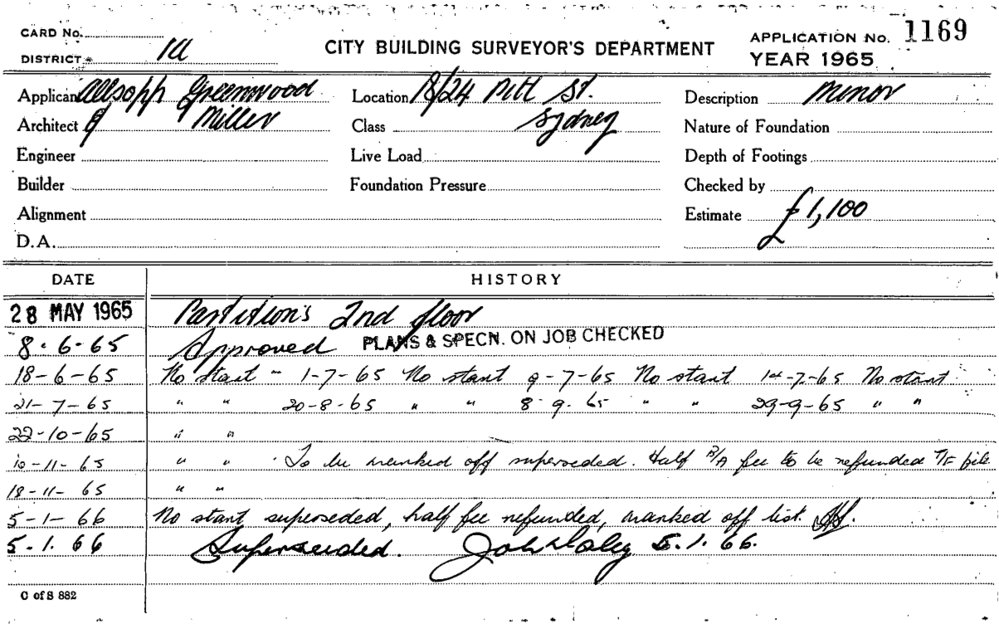 CARD No.
APPLICATION No. 1169
DISTRICT
CITY BUILDING SURVEYOR'S DEPARTMENT
YEAR 1965
Applicant Allsopp Greenwood
Location 18/24 Pitt St.
Description Minor
Architect & Miller
Class Sydney
Nature of Foundation
Engineer
Live Load
Depth of Footings
Builder
Foundation Pressure
Checked by
Alignment
Estimate £1,100
D.A.
DATE HISTORY
28 MAY 1965 Partition's 2nd floor
8-6-65 Approved PLANS & SPECN. ON JOB CHECKED
18-6-65 No start " 1-7-65 No start 9-7-65 No start 14-7-65 No start
21-7-65 " " 20-8-65 " " 8-9-65 " " 29-9-65 " "
22-10-65 " "
10-11-65 " " To be marked off superseded. Half B/A fee to be refunded T/F file
18-11-65 " "
5-1-66 No start superseded, half fee refunded, marked off list.
5.1.66 Superseeded. John Daley 5.1.66.
C of S 882